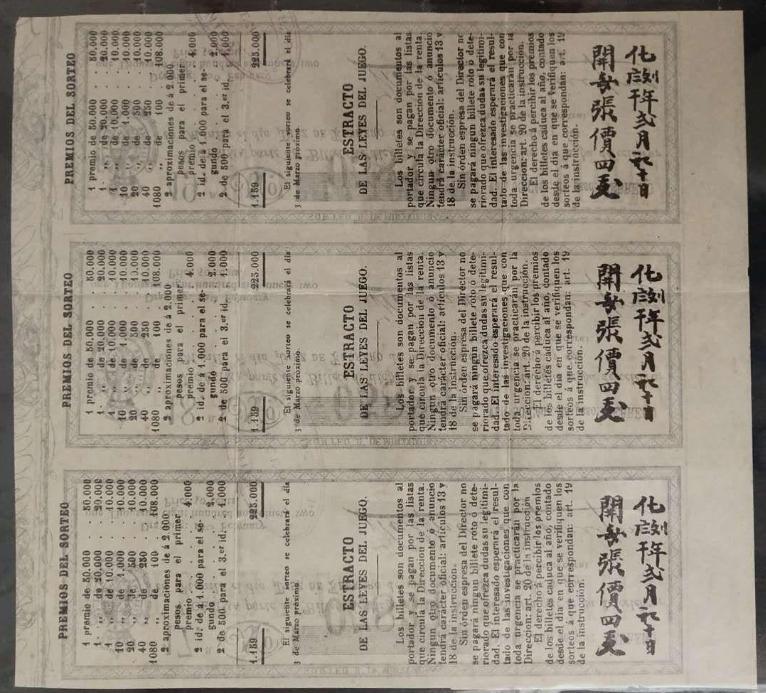 PREMIOS DEL SORTEO
1 premio de 50.000 . . . 50.000
1 ,, de 20.000 . . . 20.000
1 ,, de 10.000 . . . 10.000
10 ,, de 1.000 . . . 10.000
20 ,, de 500 . . . 10.000
40 ,, de 250 . . . 10.000
1080 de 100 . . . 108.000
2 aproximaciones de á 2.000
pesos para el primer
premio . . . 4.000
2 id. de á 1.000 para el se-
gundo . . . 2.000
2 de 500 para el 3.er id. . 1.000
1.159 225.000
El siguiente sorteo se celebrará el dia
3 de Marzo próximo
ESTRACTO
DE LAS LEYES DEL JUEGO.
Los billetes son documentos al
portador y se pagan por las listas
que circula la Direccion de la renta.
Ningun otro documento ó anuncio
tendrá carácter oficial: artículos 13 y
18 de la instruccion.
Sin orden espresa del Director no
se pagará ningun billete roto ó dete-
riorado que ofrezca dudas su legitimi-
dad. El interesado esperará el resul-
tado de las investigaciones que con
toda urgencia se practicarán por la
Direccion: art. 20 de la instruccion.
El derecho á percibir los premios
de los billetes caduca al año, contado
desde el dia en que se verifiquen los
sorteos á que correspondan: art. 19
de la instruccion.
年弍月初十日
開每張價四
PREMIOS DEL SORTEO
1 premio de 50.000 . . . 50.000
1 ,, de 20.000 . . . 20.000
1 ,, de 10.000 . . . 10.000
10 ,, de 1.000 . . . 10.000
20 ,, de 500 . . . 10.000
40 ,, de 250 . . . 10.000
1080 de 100 . . . 108.000
2 aproximaciones de á 2.000
pesos para el primer
premio . . . 4.000
2 id. de á 1.000 para el se-
gundo . . . 2.000
2 de 500 para el 3.er id. . 1.000
1.159 225.000
El siguiente sorteo se celebrará el dia
3 de Marzo próximo
ESTRACTO
DE LAS LEYES DEL JUEGO.
Los billetes son documentos al
portador y se pagan por las listas
que circula la Direccion de la renta.
Ningun otro documento ó anuncio
tendrá carácter oficial: artículos 13 y
18 de la instruccion.
Sin orden espresa del Director no
se pagará ningun billete roto ó dete-
riorado que ofrezca dudas su legitimi-
dad. El interesado esperará el resul-
tado de las investigaciones que con
toda urgencia se practicarán por la
Direccion: art. 20 de la instruccion.
El derecho á percibir los premios
de los billetes caduca al año, contado
desde el dia en que se verifiquen los
sorteos á que correspondan: art. 19
de la instruccion.
年弍月初十日
開每張價四
PREMIOS DEL SORTEO
1 premio de 50.000 . . . 50.000
1 ,, de 20.000 . . . 20.000
1 ,, de 10.000 . . . 10.000
10 ,, de 1.000 . . . 10.000
20 ,, de 500 . . . 10.000
40 ,, de 250 . . . 10.000
1080 de 100 . . . 108.000
2 aproximaciones de á 2.000
pesos para el primer
premio . . . 4.000
2 id. de á 1.000 para el se-
gundo . . . 2.000
2 de 500 para el 3.er id. . 1.000
1.159 225.000
El siguiente sorteo se celebrará el dia
3 de Marzo próximo
ESTRACTO
DE LAS LEYES DEL JUEGO.
Los billetes son documentos al
portador y se pagan por las listas
que circula la Direccion de la renta.
Ningun otro documento ó anuncio
tendrá carácter oficial: artículos 13 y
18 de la instruccion.
Sin orden espresa del Director no
se pagará ningun billete roto ó dete-
riorado que ofrezca dudas su legitimi-
dad. El interesado esperará el resul-
tado de las investigaciones que con
toda urgencia se practicarán por la
Direccion: art. 20 de la instruccion.
El derecho á percibir los premios
de los billetes caduca al año, contado
desde el dia en que se verifiquen los
sorteos á que correspondan: art. 19
de la instruccion.
年弍月初十日
開每張價四